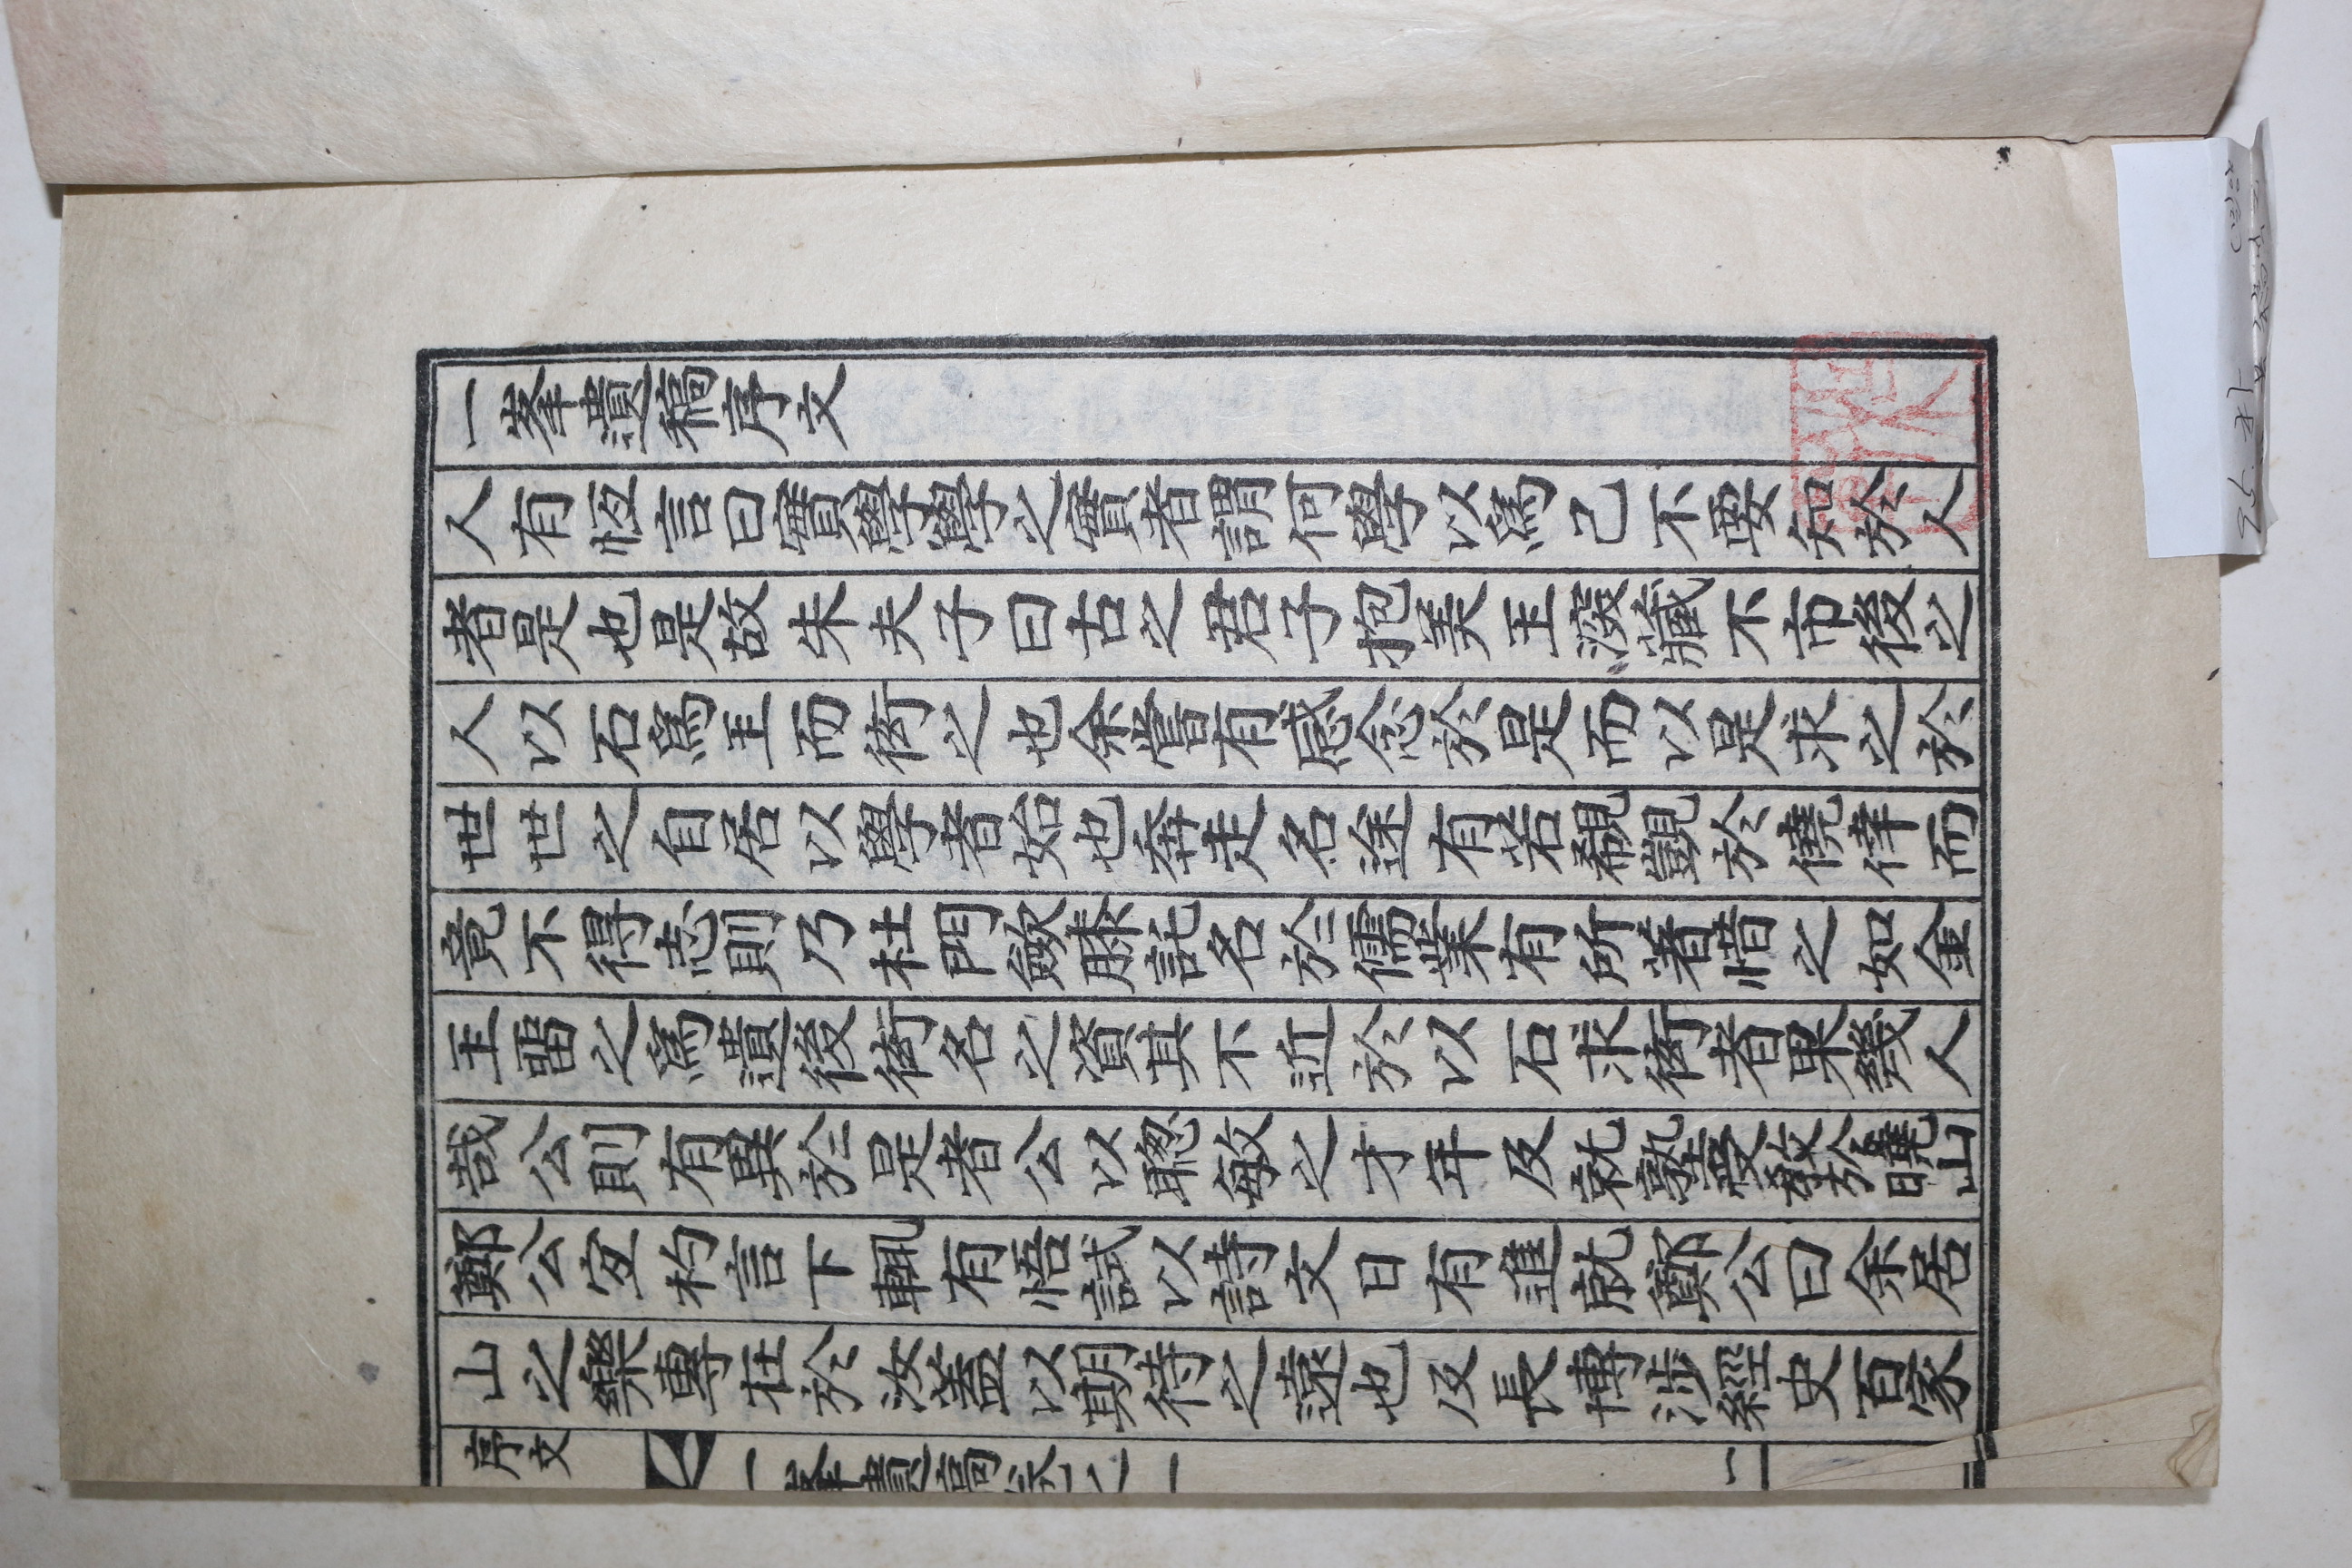 一峯遺稿序文
人有恆言曰實學學之實者謂何學以爲己不要知於人
者是也是故朱夫子曰古之君子抱美玉深藏不市後之
人以石爲玉而衒之也余嘗有感念於是而以是求之於
世世之自居以學者始也奔走名途有若覬覦於僥倖而
竟不得志則乃杜門歛膝託名於儒業有所著惜之如金
玉留之爲遺後衒名之資其不近於以石求衒者果幾人
哉公則有異於是者公以聰敏之才年及就塾受教於曉山
鄭公宜杓言下輒有悟試以詩文日有進就鄭公曰余居
山之樂專在於汝蓋以期待之遠也及長博涉經史百家
序文 一峯遺稿卷之一 二